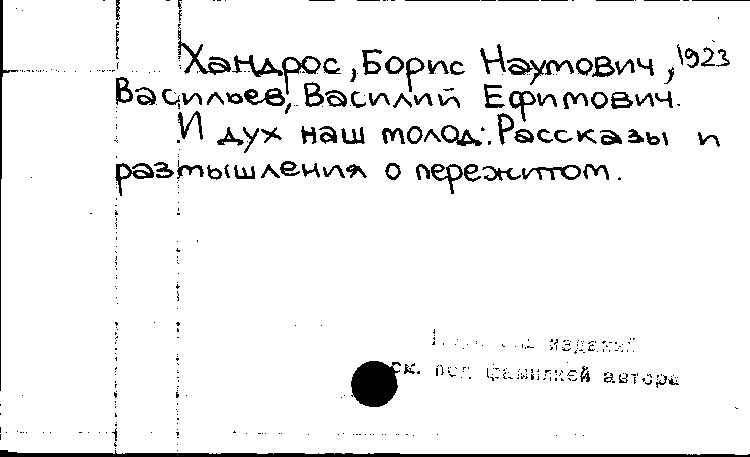 Хандрос, Борис Наумович, 1923
Васильев, Василий Ефимович.
И дух наш молод: Рассказы и
размышления о пережитом.
изданий
ск. под фамилией автора